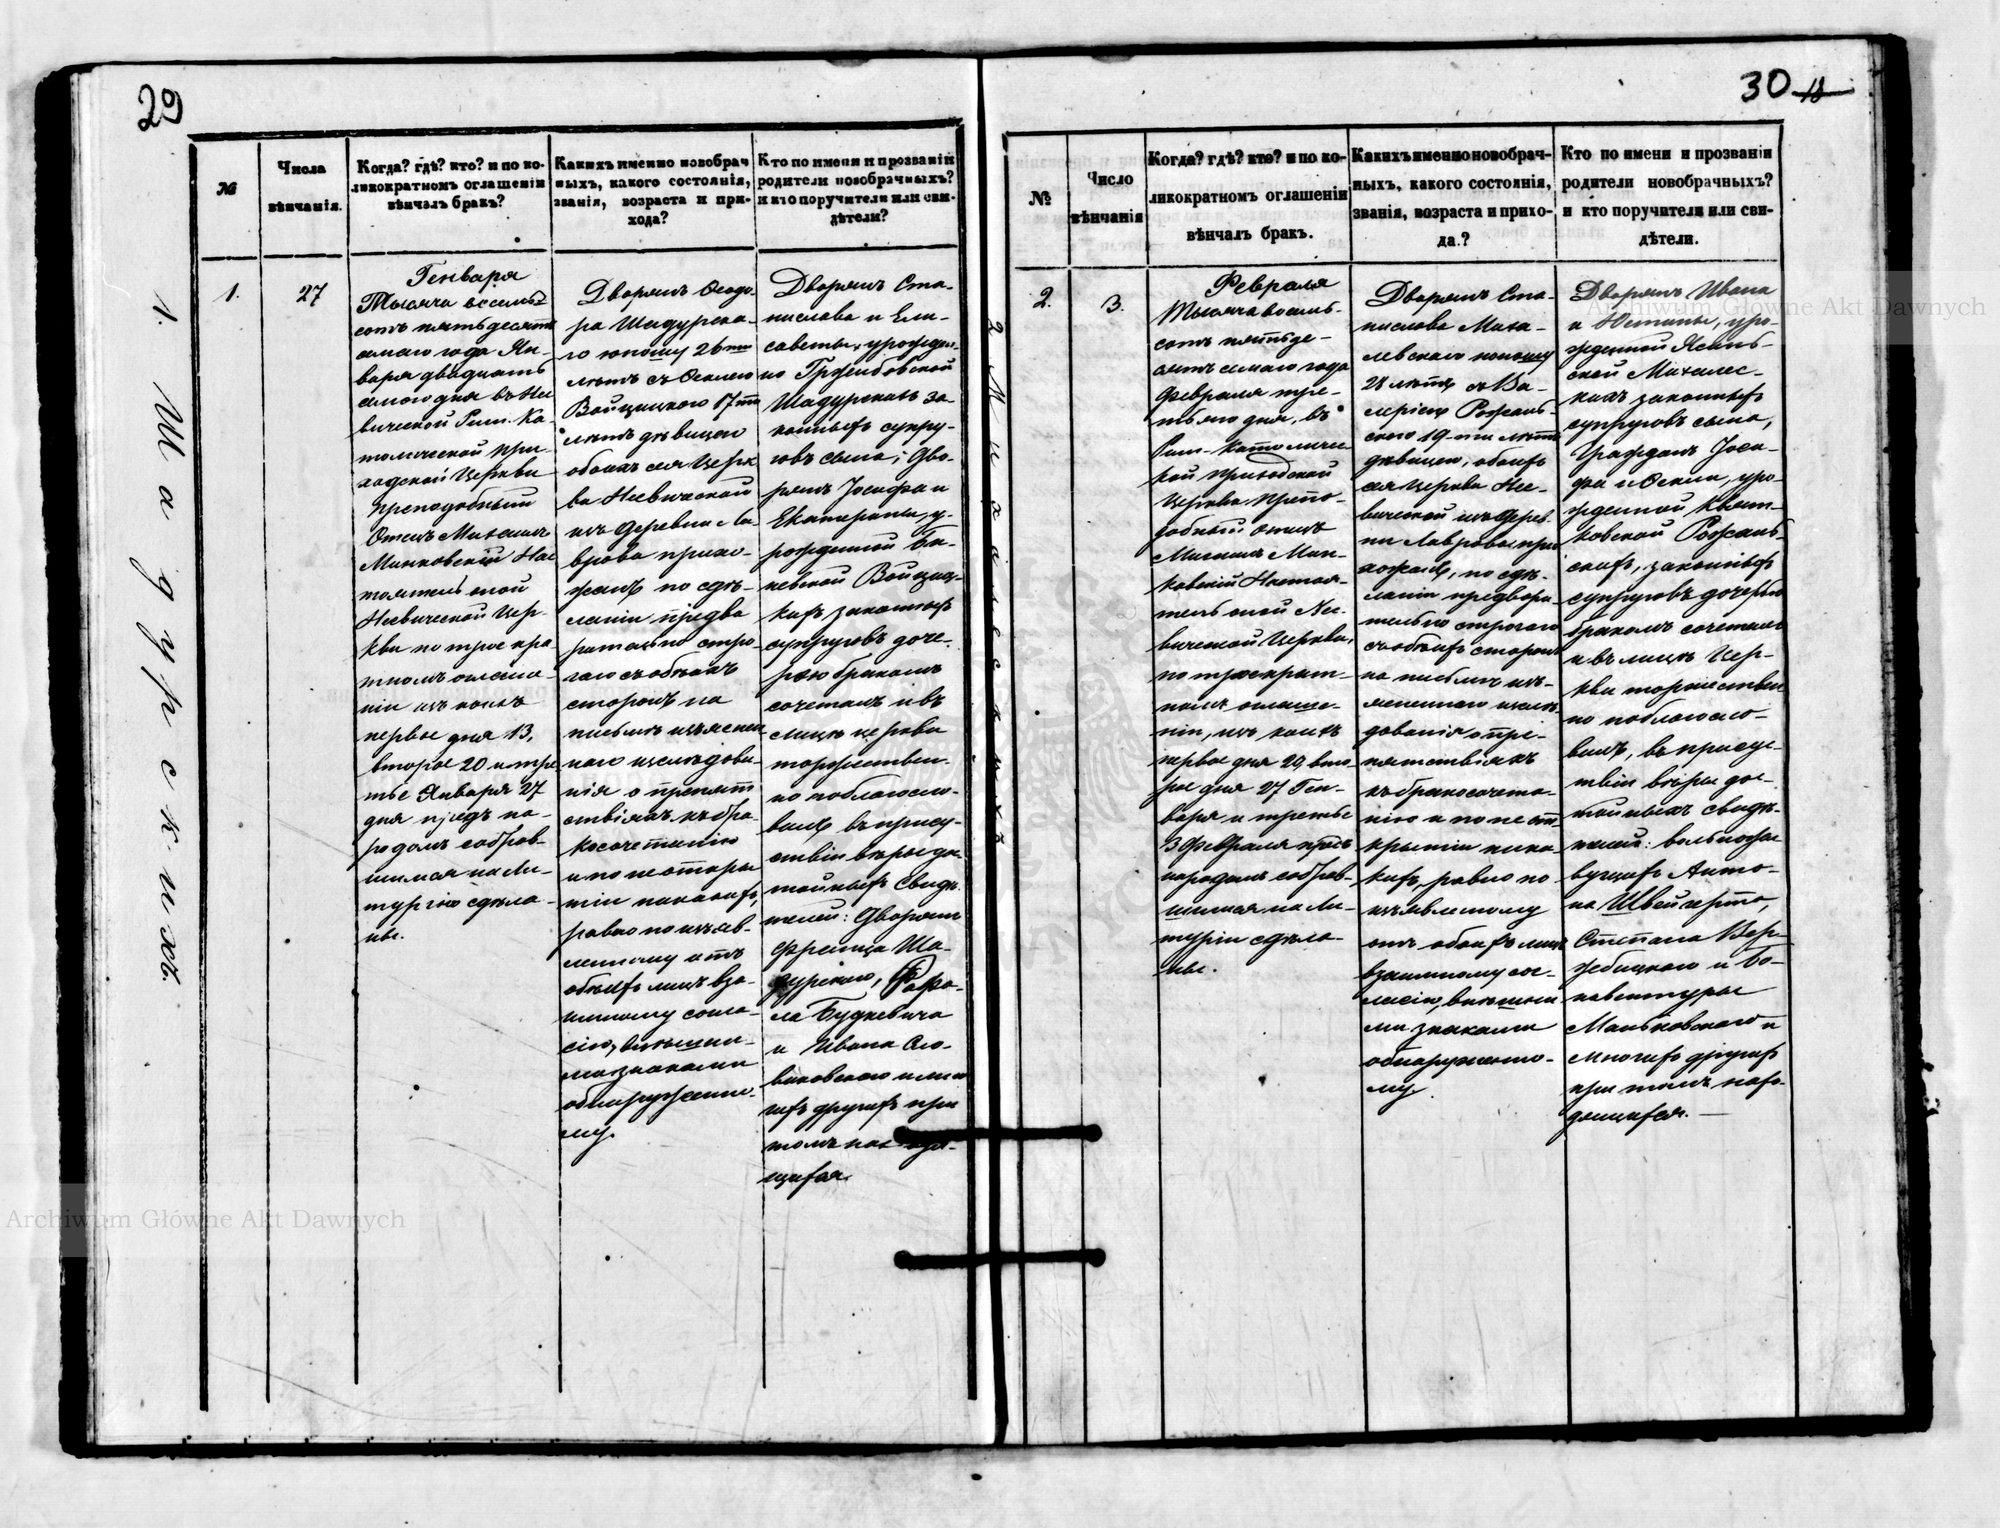 29
№
Числа
вѣнчанія.
Когда? гдѣ? кто? и по ко-
ликократномъ оглашеніи
вѣнчалъ бракъ?
Какихъ именно новобрач
ныхъ, какого состоянія,
званія, возраста и при-
хода?
Кто по имени и прозванію
родители новобрачныхъ?
и кто поручители или сви-
дѣтели?
1. Шадурскихъ
1.
27
Генваря
Тысяча восемь
сотъ пятьдесятъ
седмаго года Ян-
варя двадцать
седмого дня въ Не
вической Рим. Ка-
толической при-
ходской Церкви
Преподобный
Отецъ Михаилъ
Маньковскій Нас
тоятель оной
Невической Цер-
кви по трое кра
тномъ оглаше-
ніи изъ коихъ
первое дня 13,
второе 20 и тре
тье Января 27
дня предъ на-
родомъ собрав-
шимся на Ли-
тургію сдѣла-
ны.
Дворянъ Ѳеодо-
ра Шадурска-
го юношу 26ти
лѣтъ съ Осклею
Войцицкого 17ти
лѣтъ дѣвицею
обоихъ сея Церк
ви Невической
изъ деревни Ла-
врова прихо-
жанъ по сдѣ-
ланіи предва
рательно стро-
гаго съ обѣихъ
сторонъ на
письмѣ изъяснен
наго изслѣдова-
нія о препят
ствіяхъ къ бра-
косочетанію
и по не откры
тіи никакихъ,
равно по изъяв-
ленному отъ
обѣихъ лицъ вза-
имному согла-
сію, внѣшни-
ми знаками
обнаруженно-
му.
Дворянъ Ста-
нислава и Ели-
саветы, урожден-
но Гржибовской
Шадурскихъ за-
конныхъ супру-
говъ сына; Дво-
рянъ Іосифа и
Екатерины, у-
рожденной
Войциц-
кихъ законныхъ
супруговъ доче-
рью бракомъ
сочеталъ и въ
лицѣ церкви
торжествен-
но поблагосло-
вилъ въ присут-
ствіи вѣры до-
стойныхъ Свидѣ-
телей: Дворянъ
Франца Ша-
дурского, Рафа-
ла Будкевича
и Ивана Сло-
виковского и мно
гихъ другихъ при
томъ находя-
щихся.
30 18
№
Число
вѣнчанія
Когда? гдѣ? кто? и по ко-
ликократномъ оглашеніи
вѣнчалъ бракъ.
Какихъ именно новобрач-
ныхъ, какого состоянія,
званія, возраста и прихо-
да.?
Кто по имени и прозванію
родители новобрачныхъ?
и кто поручители или сви-
дѣтели.
2.
3.
Февраля
Тысяча восемь-
сотъ пятьде-
сятъ седмаго года
Февраля тре-
тьяго дня, въ
Рим-Католичес
кой Приходской
Церкви Препо-
добный Отецъ
Михаилъ Мань-
ковскій Настоя-
тель оной Не-
вической Церкви,
по троекрат-
номъ оглаше-
ніи, изъ коихъ
первое дня 20, вто-
рое дня 27 Ген-
варя и третье
3 Февраля предъ
народомъ собрав-
шимся на Ли-
тургіи сдѣла-
ны.
Дворянъ Ста-
нислава Миха-
левского юношу
28 лѣтъ съ Ва-
леріею Рожань-
ского 19-ти лѣтъ
дѣвицею, обоихъ
сея Церкви Не-
вической изъ дерев-
ни Лаврова при
хожанъ, по сдѣ-
ланіи предвари
тельно строгаго
съ обѣихъ сторонъ
на письмѣ изъ-
ясненнаго изслѣ-
дованія о пре-
пятствіяхъ
къ бракосочета-
нію и по не от-
крытіи ника-
кихъ, равно по
изъявленному
отъ обоихъ лицъ
взаимному сог-
ласію, внѣшни
ми знаками
обнаруженно-
му.
Дворянъ Ивана
и Юстины, уро-
жденной Ясинь-
ской Михалев-
кихъ законныхъ
супруговъ сына,
Гражданъ Іоси-
фа и Оскли, уро-
жденной Квят-
ковской Рожань-
скихъ, законныхъ
супруговъ дочерью
бракомъ сочеталъ
и въ лицѣ Цер-
кви торжествен
но поблагосло-
вилъ, въ присут-
ствіи вѣры дос-
тойныхъ свидѣ-
телей: вольноживущихъ Анто-
на Швейгерта,
Степана Вер-
жбицкого и Бо-
навентуры
Маньковского и
многихъ другихъ
при томъ нахо-
дящихся.
Archiwum Główne Akt Dawnych
Archiwum Główne Akt Dawnych